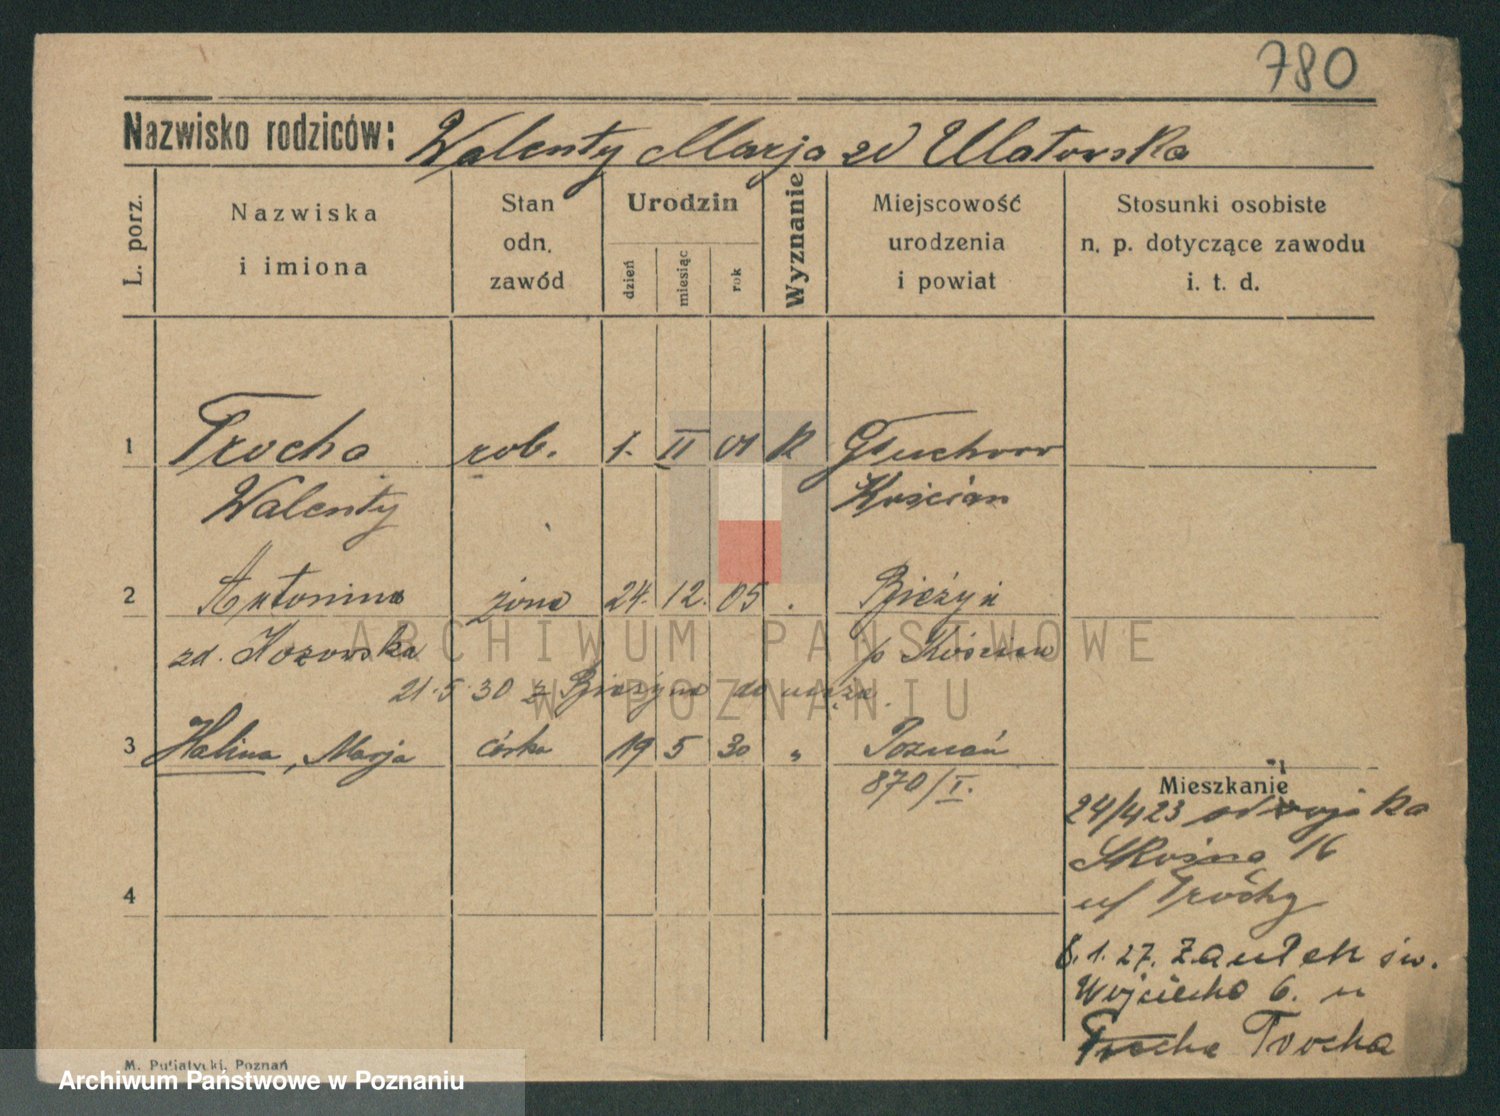 780
Nazwisko rodziców: Walenty Marja zd Ulatowska
L. porz.
Nazwiska
i imiona
Stan
odn.
zawód
Urodzin
dzień
miesiąc
rok
Wyznanie
Miejscowość
urodzenia
i powiat
Stosunki osobiste
n. p. dotyczące zawodu
i. t. d.
1 Trocha rob. 1. II 01 R Głuchowo
Walenty Kościan
2 Antonina żona 24. 12. 05 . Bieżyń
zd. p Kościan
21.5 30 z Bieżynia do męża.
3 Halina, Marja córka 19 5 30 " Poznań
870/I.
4
Mieszkanie
24/4 23 od wojska
16
u/ Trochy
8.1.27. Zaułek św.
Wojciecha 6. u
Trocha Trocha
M. Putiatycki, Poznań
ARCHIWUM PAŃSTWOWE
W POZNANIU
Archiwum Państwowe w Poznaniu